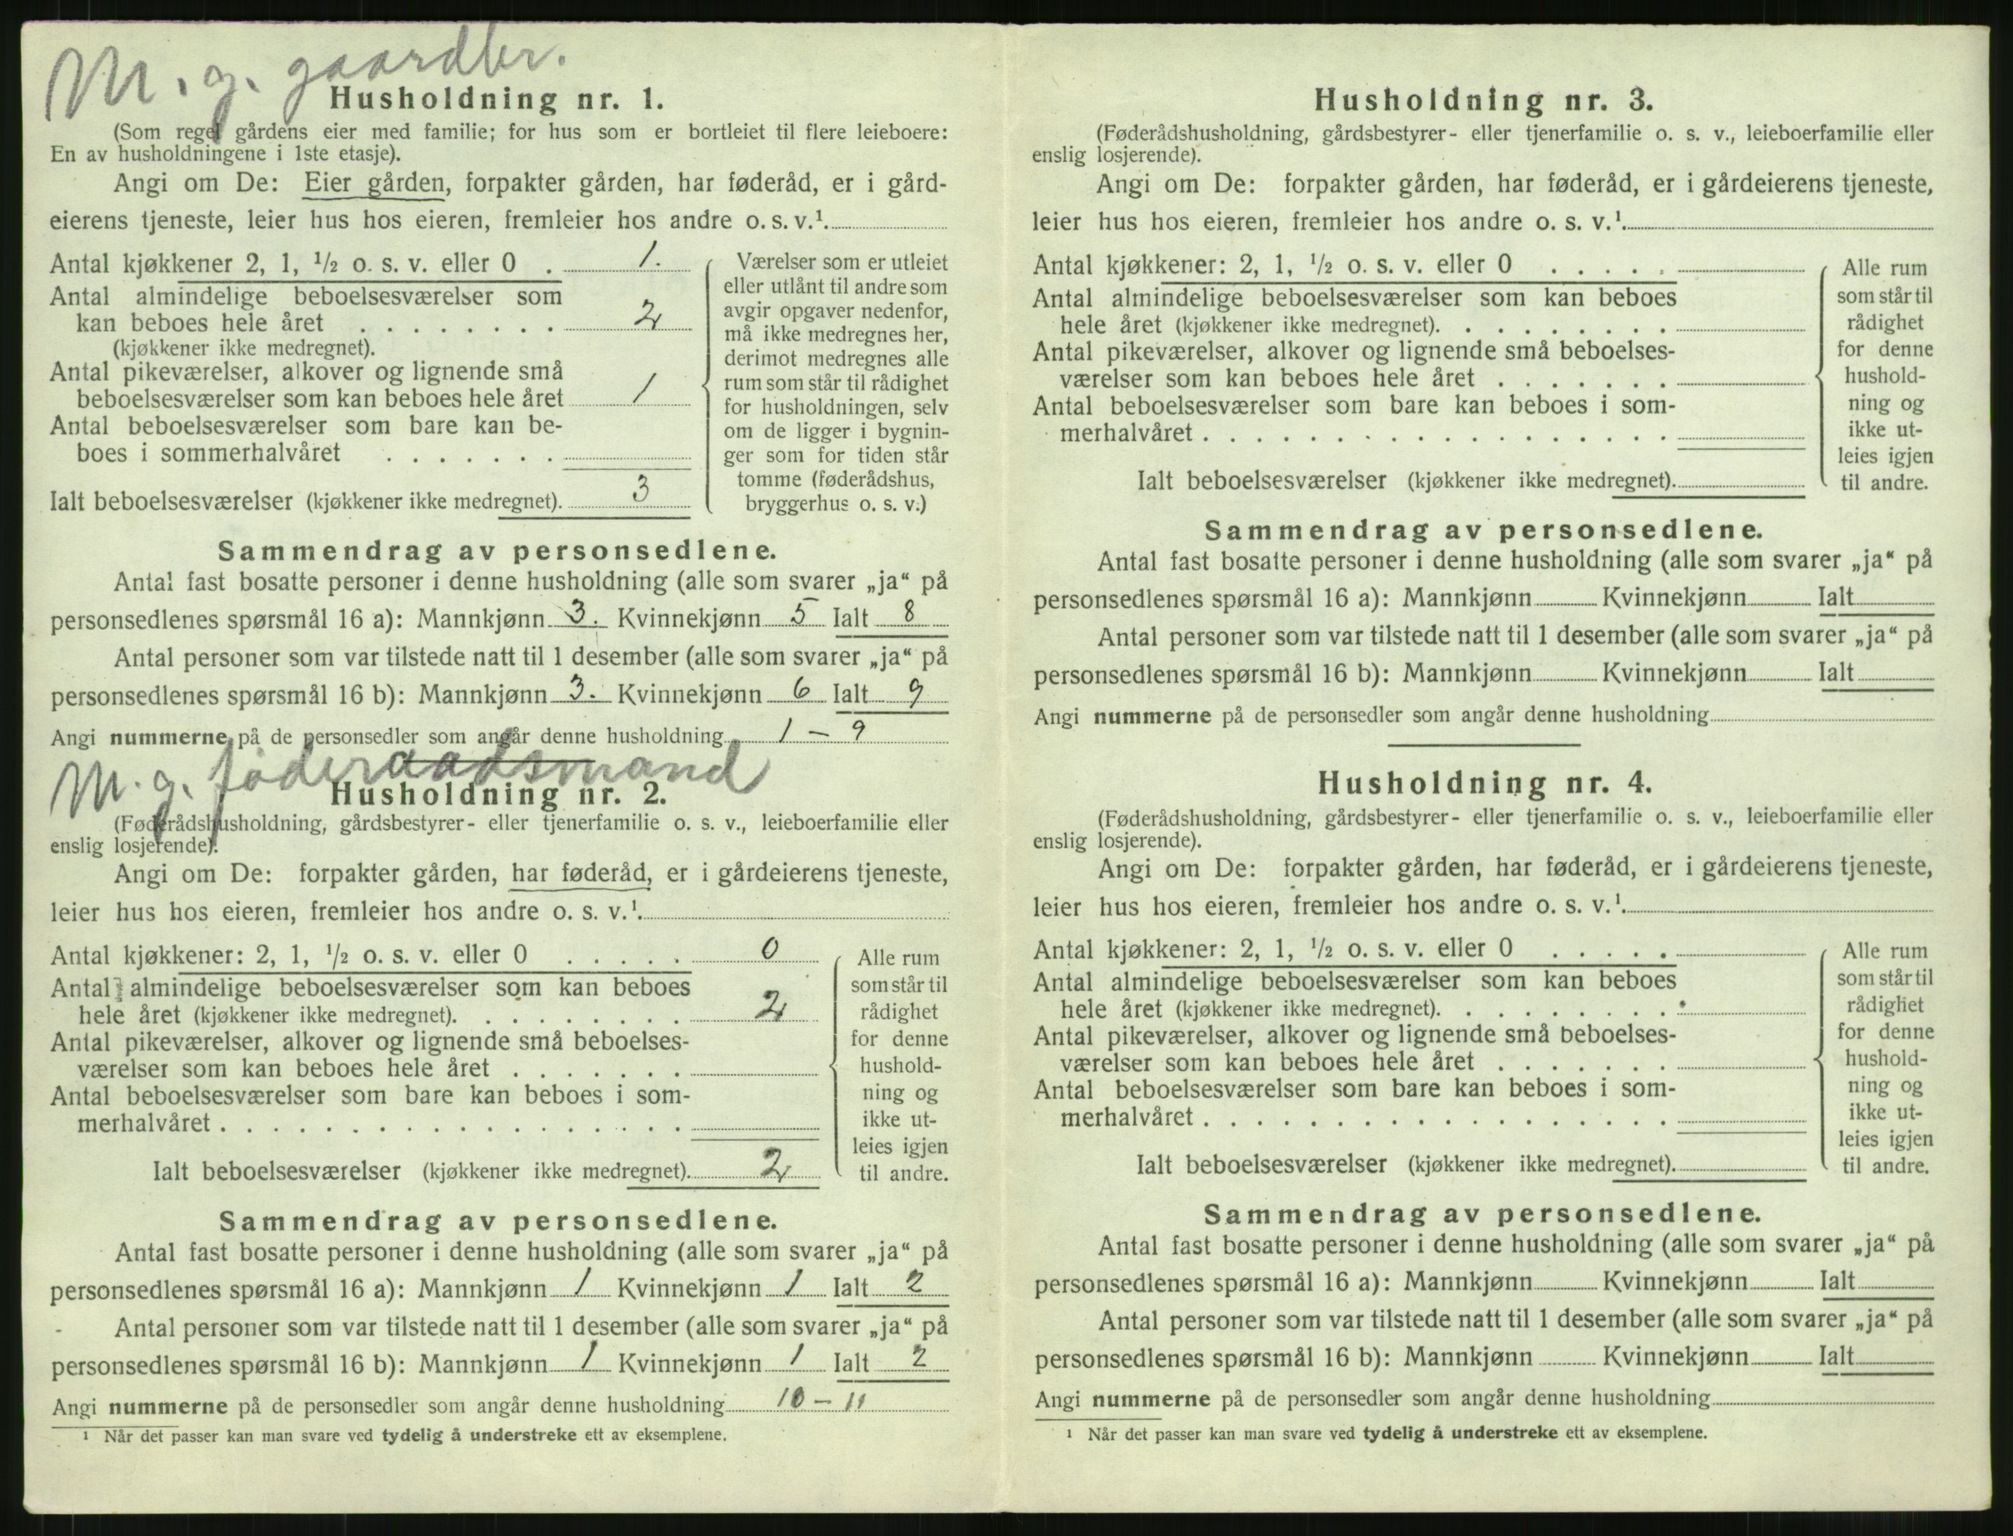 M. g. gaardbr.
Husholdning nr. 1.
(Som regel gårdens eier med familie; for hus som er bortleiet til flere leieboere:
En av husholdningene i 1ste etasje).
Angi om De: Eier gården, forpakter gården, har føderåd, er i gård-
eierens tjeneste, leier hus hos eieren, fremleier hos andre o. s. v.¹
Antal kjøkkener 2, 1, ½ o. s. v. eller 0 . 1.
Antal almindelige beboelsesværelser som
kan beboes hele året . . . . . . . . 2
(kjøkkener ikke medregnet).
Antal pikeværelser, alkover og lignende små
beboelsesværelser som kan beboes hele året 1
Antal beboelsesværelser som bare kan be-
boes i sommerhalvåret . . . . . . .
Ialt beboelsesværelser (kjøkkener ikke medregnet). 3
Værelser som er utleiet
eller utlånt til andre som
avgir opgaver nedenfor,
må ikke medregnes her,
derimot medregnes alle
rum som står til rådighet
for husholdningen, selv
om de ligger i bygnin-
ger som for tiden står
tomme (føderådshus,
bryggerhus o. s. v.)
Sammendrag av personsedlene.
Antal fast bosatte personer i denne husholdning (alle som svarer „ja“ på
personsedlenes spørsmål 16 a): Mannkjønn 3. Kvinnekjønn 5 Ialt 8
Antal personer som var tilstede natt til 1 desember (alle som svarer „ja“ på
personsedlenes spørsmål 16 b): Mannkjønn 3. Kvinnekjønn 6 Ialt 9
Angi nummerne på de personsedler som angår denne husholdning 1 – 9
M. g. føderaadsmand
Husholdning nr. 2.
(Føderådshusholdning, gårdsbestyrer- eller tjenerfamilie o. s. v., leieboerfamilie eller
enslig losjerende).
Angi om De: forpakter gården, har føderåd, er i gårdeierens tjeneste,
leier hus hos eieren, fremleier hos andre o. s. v.¹
Antal kjøkkener: 2, 1, ½ o. s. v. eller 0 . . . . . 0
Antal almindelige beboelsesværelser som kan beboes
hele året (kjøkkener ikke medregnet). . . . . . . . . 2
Antal pikeværelser, alkover og lignende små beboelses-
værelser som kan beboes hele året . . . . . . .
Antal beboelsesværelser som bare kan beboes i som-
merhalvåret . . . . . . . . . . . . . . . . . .
Ialt beboelsesværelser (kjøkkener ikke medregnet). 2
Alle rum
som står til
rådighet
for denne
hushold-
ning og
ikke ut-
leies igjen
til andre.
Sammendrag av personsedlene.
Antal fast bosatte personer i denne husholdning (alle som svarer „ja“ på
personsedlenes spørsmål 16 a): Mannkjønn 1 Kvinnekjønn 1 Ialt 2
Antal personer som var tilstede natt til 1 desember (alle som svarer „ja“ på
personsedlenes spørsmål 16 b): Mannkjønn 1 Kvinnekjønn 1 Ialt 2
Angi nummerne på de personsedler som angår denne husholdning 10 – 11
¹ Når det passer kan man svare ved tydelig å understreke ett av eksemplene.
Husholdning nr. 3.
(Føderådshusholdning, gårdsbestyrer- eller tjenerfamilie o. s. v., leieboerfamilie eller
enslig losjerende).
Angi om De: forpakter gården, har føderåd, er i gårdeierens tjeneste,
leier hus hos eieren, fremleier hos andre o. s. v.¹
Antal kjøkkener: 2, 1, ½ o. s. v. eller 0 . . . . .
Antal almindelige beboelsesværelser som kan beboes
hele året (kjøkkener ikke medregnet). . . . . . . . .
Antal pikeværelser, alkover og lignende små beboelses-
værelser som kan beboes hele året . . . . . . .
Antal beboelsesværelser som bare kan beboes i som-
merhalvåret . . . . . . . . . . . . . . . . . .
Ialt beboelsesværelser (kjøkkener ikke medregnet).
Alle rum
som står til
rådighet
for denne
hushold-
ning og
ikke ut-
leies igjen
til andre.
Sammendrag av personsedlene.
Antal fast bosatte personer i denne husholdning (alle som svarer „ja“ på
personsedlenes spørsmål 16 a): Mannkjønn Kvinnekjønn Ialt
Antal personer som var tilstede natt til 1 desember (alle som svarer „ja“ på
personsedlenes spørsmål 16 b): Mannkjønn Kvinnekjønn Ialt
Angi nummerne på de personsedler som angår denne husholdning
Husholdning nr. 4.
(Føderådshusholdning, gårdsbestyrer- eller tjenerfamilie o. s. v., leieboerfamilie eller
enslig losjerende).
Angi om De: forpakter gården, har føderåd, er i gårdeierens tjeneste,
leier hus hos eieren, fremleier hos andre o. s. v.¹
Antal kjøkkener: 2, 1, ½ o. s. v. eller 0 . . . . .
Antal almindelige beboelsesværelser som kan beboes
hele året (kjøkkener ikke medregnet). . . . . . . . .
Antal pikeværelser, alkover og lignende små beboelses-
værelser som kan beboes hele året . . . . . . .
Antal beboelsesværelser som bare kan beboes i som-
merhalvåret . . . . . . . . . . . . . . . . . .
Ialt beboelsesværelser (kjøkkener ikke medregnet).
Alle rum
som står til
rådighet
for denne
hushold-
ning og
ikke ut-
leies igjen
til andre.
Sammendrag av personsedlene.
Antal fast bosatte personer i denne husholdning (alle som svarer „ja“ på
personsedlenes spørsmål 16 a): Mannkjønn Kvinnekjønn Ialt
Antal personer som var tilstede natt til 1 desember (alle som svarer „ja“ på
personsedlenes spørsmål 16 b): Mannkjønn Kvinnekjønn Ialt
Angi nummerne på de personsedler som angår denne husholdning
¹ Når det passer kan man svare ved tydelig å understreke ett av eksemplene.